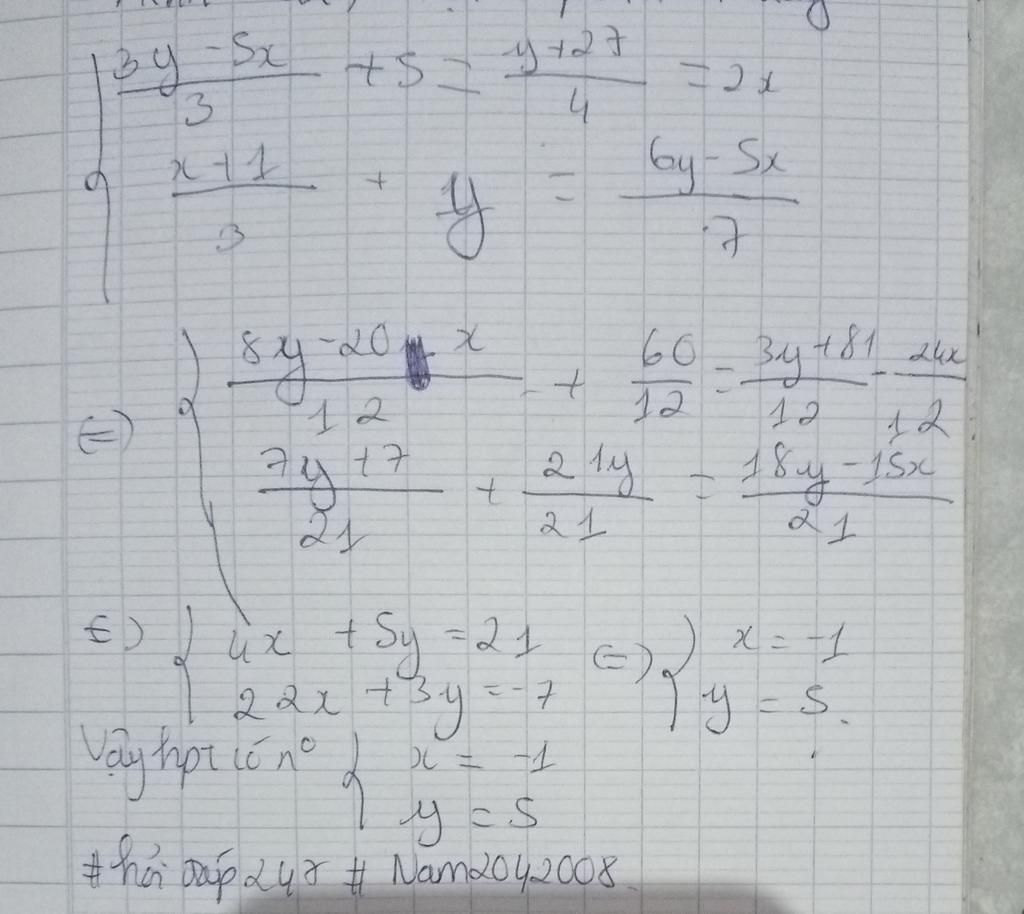 { (3y - 5x)/3 + 5 = (y + 27)/4 = 2x
(x + 1)/3 + y = (6y - 5x)/7
⇔ { (8y - 20x)/12 + 60/12 = (3y + 81)/12 - 24x/12
(7y + 7)/21 + 21y/21 = (18y - 15x)/21
⇔ { 4x + 5y = 21 ⇔ { x = -1
22x + 3y = -7 y = 5.
Vậy hpt có n° { x = -1
y = 5
# hỏi đáp 247 # Nam2042008.